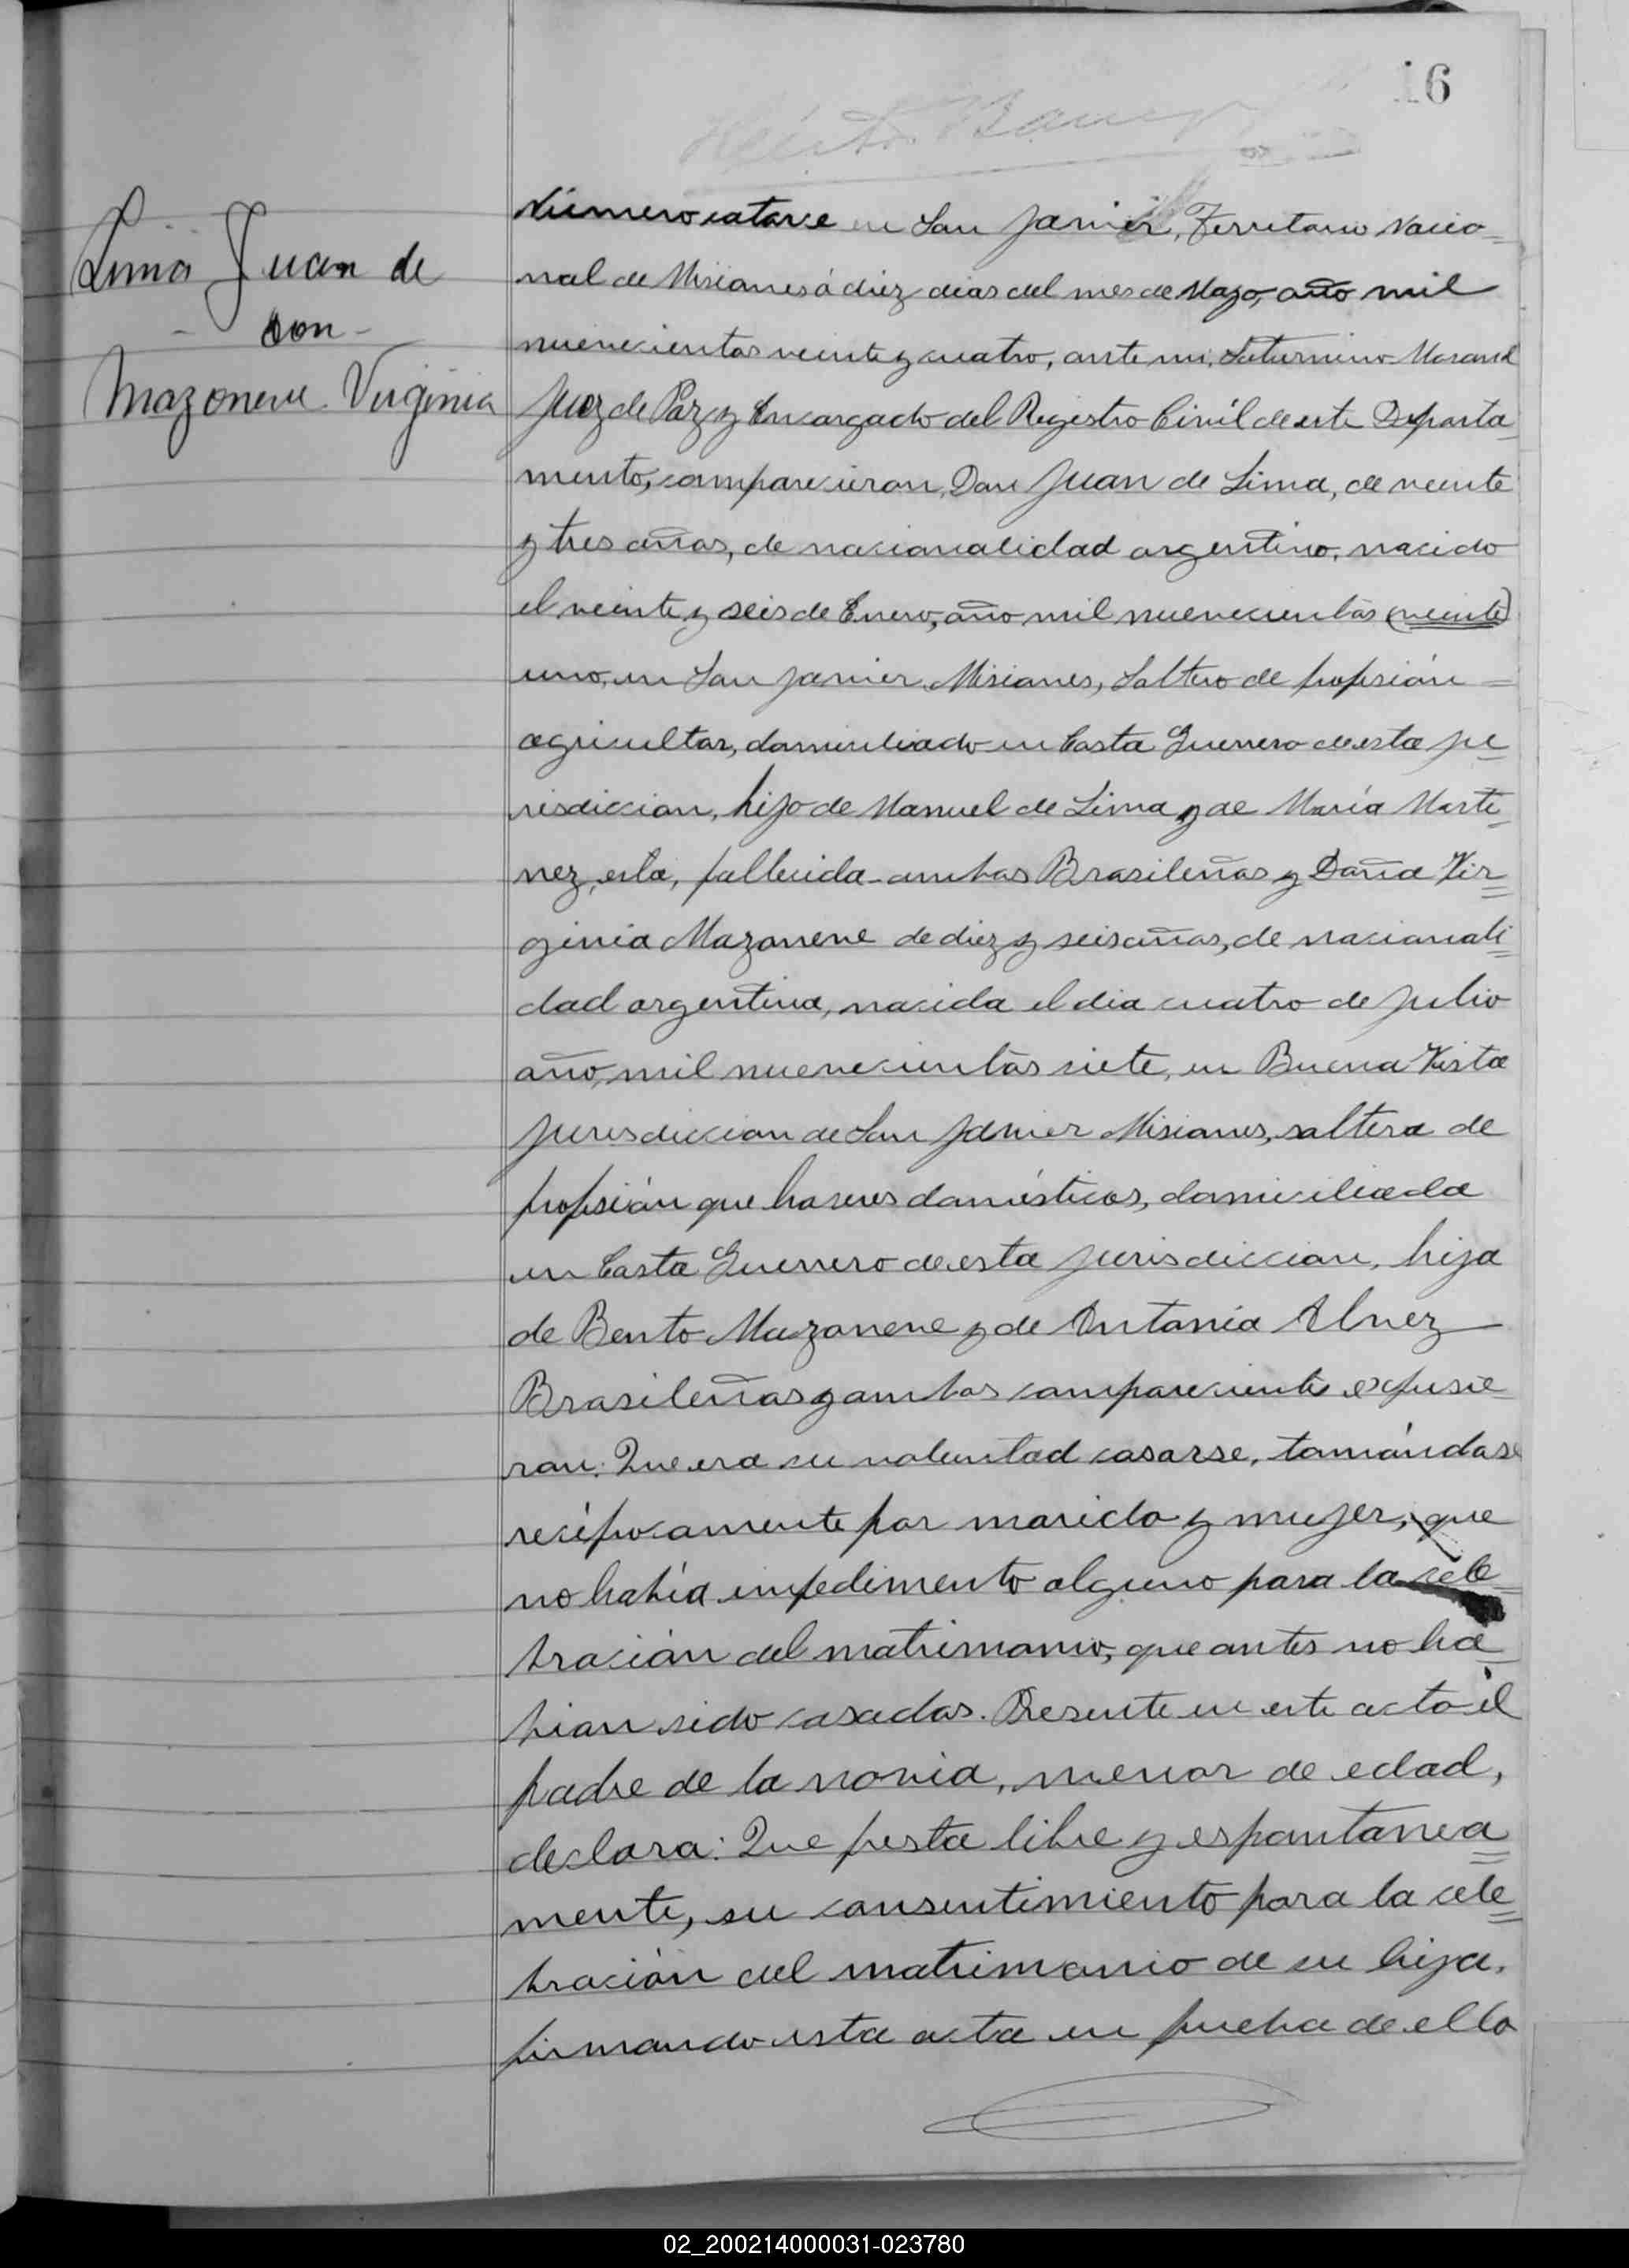 16
Lima Juan de
- con -
Mazonene Virginia
Número catorce en San Javier, Territorio Nacio=
nal de Misiones á diez dias del mes de Mayo, año mil
nuevecientos veinte y cuatro, ante mi, Saturnino Morand
Juez de Paz y Encargado del Registro Civil de este Departa
mento, comparecieron, Don Juan de Lima, de veinte
y tres años, de nacionalidad argentino, nacido
el veinte y seis de Enero, año mil nuevecientos (veinte)
uno, en San Javier Misiones, Soltero de profesión =
agricultor, domiciliado en Costa Guerrero de esta ju
risdiccion, hijo de Manuel de Lima y de María Marti
nez, esta, fallecida ambos Brasileños y Doña Vir=
ginia Mazonene de diez y seis años, de nacionali=
dad argentina, nacida el dia cuatro de Julio
año, mil nuevecientos siete, en Buena Vista
Jurisdiccion de San Javier Misiones, soltera de
profesión que haseres domésticos, domiciliada
en Costa Guerrero de esta Jurisdiccion, hija
de Bento Mazonene y de Antonia Alvez
Brasileños y ambos compareciente expusie
ron: Que era su voluntad casarse, tomándose
recíprocamente por marido y mujer, que
no había impedimento alguno para la cele=
bración del matrimonio, que antes no ha
bian sido casados. Presente en este acto él
padre de la novia, menor de edad,
declara: Que presta libre y espontanea=
mente, su consentimiento para la cele=
bración del matrimonio de su hija.
firmando esta acta en prueba de ello
02_200214000031-023780